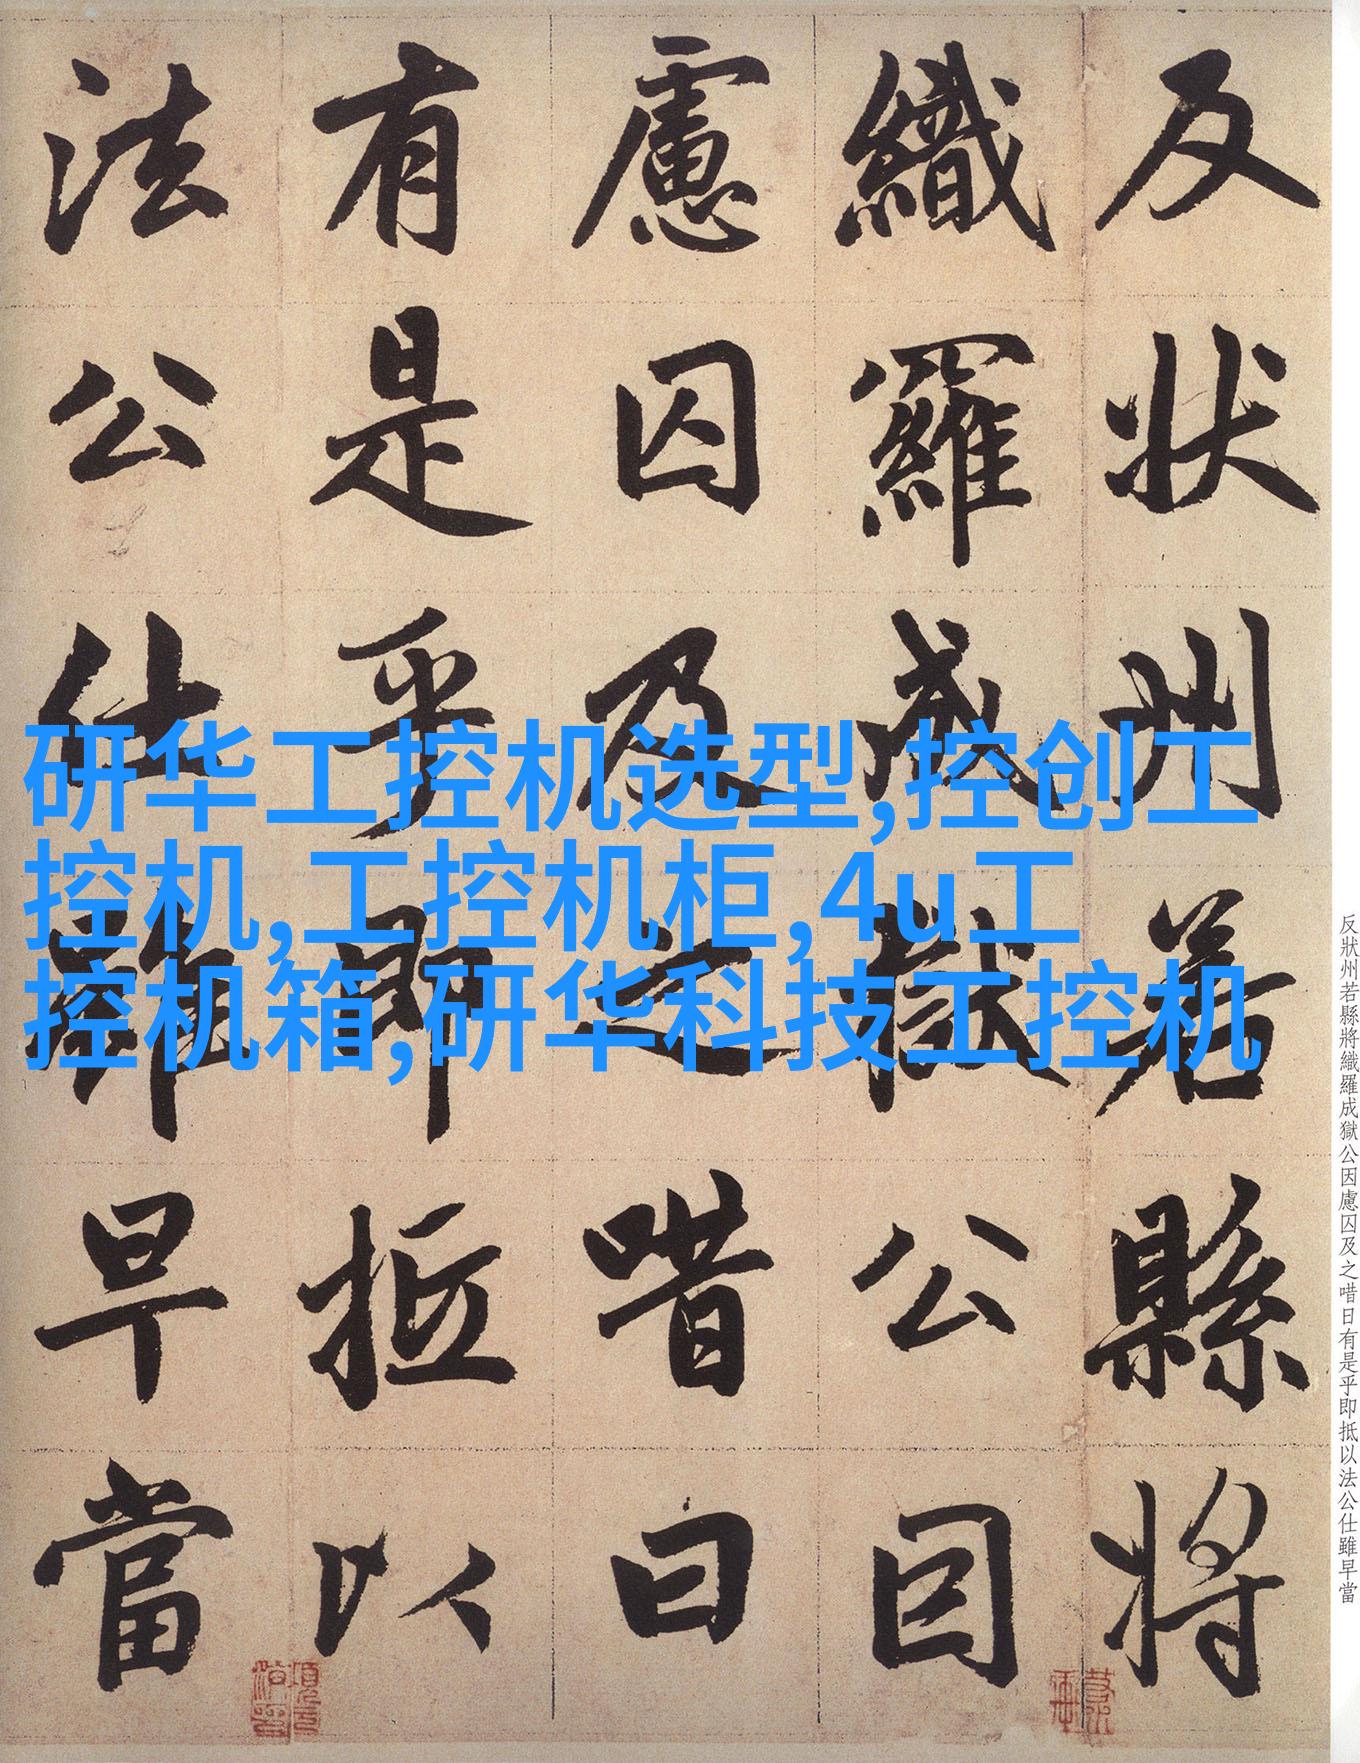 反狀州若縣將
織羅成獄公因
慮囚及之唶曰
有是乎即抵以
法公仕雖早當
研华工控机选型,控创工
控机,工控机柜,4u工
控机箱,研华科技工控机
反狀州若縣將織羅成獄公因慮囚及之唶日有是乎即抵以法公仕雖早當